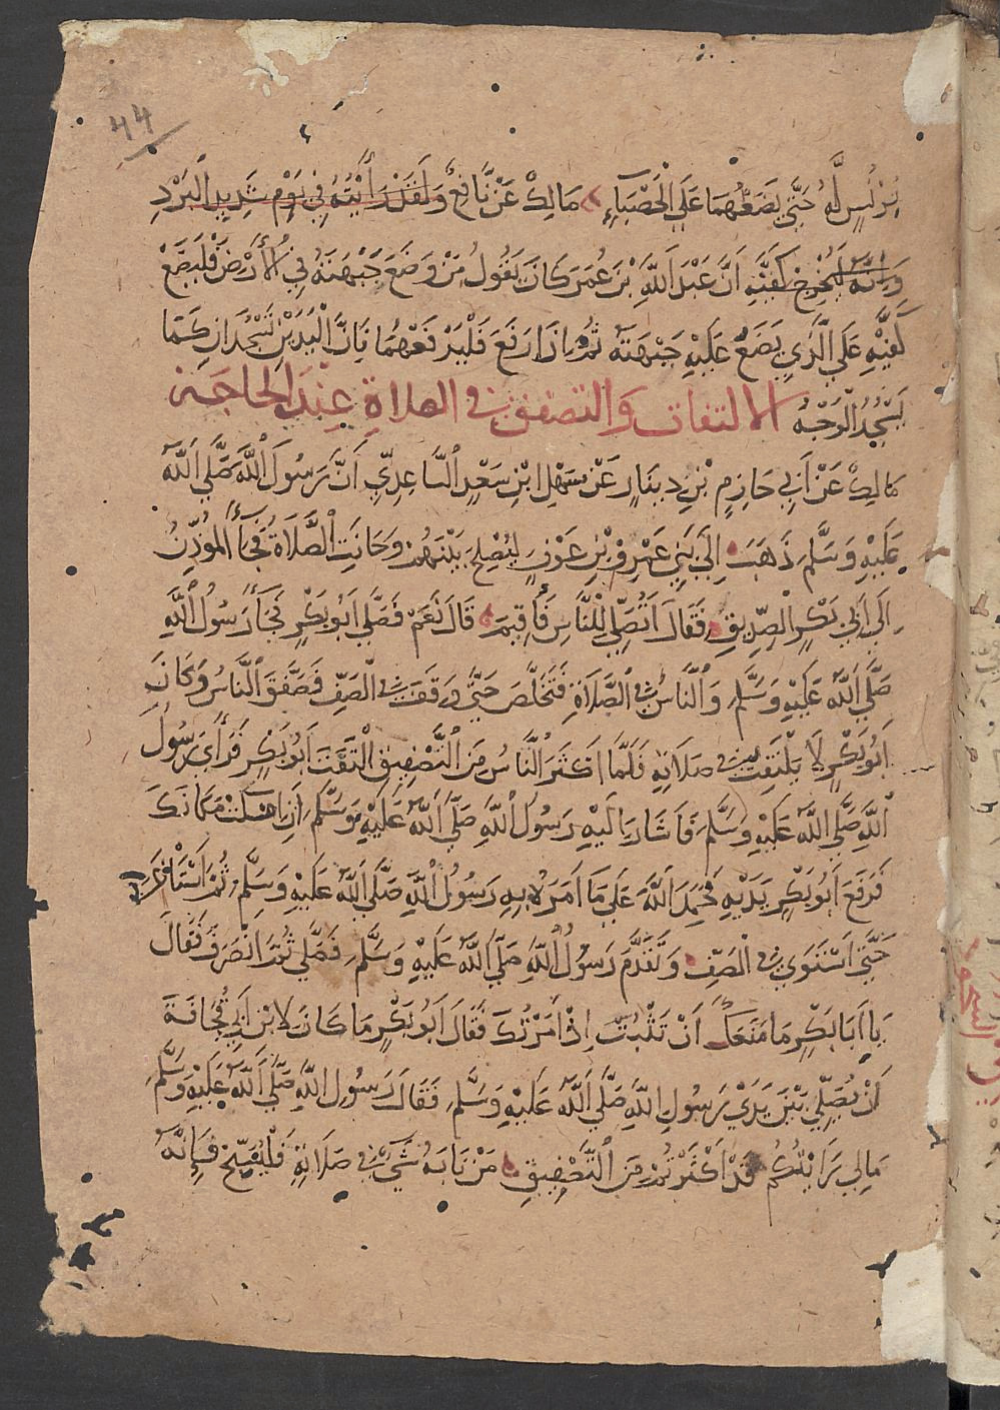 ٤٤
بُرْنُسٍ لَّهُ حَتَّى يَضَعَهُمَا عَلَى الْحَصْبَاءِ مَالِكْ عَنْ نَّافِعٍ وَلَقَدْ رَأَيْتُهُ فِي يَوْمٍ شَدِيدِ الْبَرْدِ
وَإِنَّهُ لَيُخْرِجُ كَفَّيْهِ أَنَّ عَبْدَ اللَّهِ بْنَ عُمَرَ كَانَ يَقُولُ مَنْ وَضَعَ جَبْهَتَهُ فِي الْأَرْضِ فَلْيَضَعْ
كَفَّيْهِ عَلَى الَّذِي يَضَعُ عَلَيْهِ جَبْهَتَهُ ثُمَّ إِذَا رَفَعَ فَلْيَرْفَعْهُمَا فَإِنَّ الْيَدَيْنِ تَسْجُدَانِ كَمَا
يَسْجُدُ الْوَجْهُ الالتفات والتصفيق في الصلاة عند الحاجة
مَالِكْ عَنْ أَبِي حَازِمٍ بْنِ دِينَارٍ عَنْ سَهْلِ ابْنِ سَعْدٍ السَّاعِدِيِّ أَنَّ رَسُولَ اللَّهِ صَلَّى اللَّهُ
عَلَيْهِ وَسَلَّمَ ذَهَبَ إِلَى بَنِي عَمْرِو بْنِ عَوْفٍ لِيُصْلِحَ بَيْنَهُمْ وَحَانَتِ الصَّلَاةُ فَجَاءَ الْمُؤَذِّنُ
إِلَى أَبِي بَكْرٍ الصِّدِّيقِ فَقَالَ أَتُصَلِّي لِلنَّاسِ فَأُقِيمَ قَالَ نَعَمْ فَصَلَّى أَبُو بَكْرٍ فَجَاءَ رَسُولُ اللَّهِ
صَلَّى اللَّهُ عَلَيْهِ وَسَلَّمَ وَالنَّاسُ فِي الصَّلَاةِ فَتَخَلَّصَ حَتَّى وَقَفَ فِي الصَّفِّ فَصَفَّقَ النَّاسُ وَكَانَ
أَبُو بَكْرٍ لَا يَلْتَفِتُ فِي صَلَاتِهِ فَلَمَّا أَكْثَرَ النَّاسُ مِنَ التَّصْفِيقِ الْتَفَتَ أَبُو بَكْرٍ فَرَأَى رَسُولَ
اللَّهِ صَلَّى اللَّهُ عَلَيْهِ وَسَلَّمَ فَأَشَارَ إِلَيْهِ رَسُولُ اللَّهِ صَلَّى اللَّهُ عَلَيْهِ وَسَلَّمَ أَنِ امْكُثْ مَكَانَكَ
فَرَفَعَ أَبُو بَكْرٍ يَدَيْهِ فَحَمِدَ اللَّهَ عَلَى مَا أَمَرَهُ بِهِ رَسُولُ اللَّهِ صَلَّى اللَّهُ عَلَيْهِ وَسَلَّمَ ثُمَّ اسْتَأْخَرَ
حَتَّى اسْتَوَى فِي الصَّفِّ وَتَقَدَّمَ رَسُولُ اللَّهِ صَلَّى اللَّهُ عَلَيْهِ وَسَلَّمَ فَصَلَّى ثُمَّ انْصَرَفَ فَقَالَ
يَا أَبَا بَكْرٍ مَا مَنَعَكَ أَنْ تَثْبُتَ إِذْ أَمَرْتُكَ فَقَالَ أَبُو بَكْرٍ مَا كَانَ لِابْنِ أَبِي قُحَافَةَ
أَنْ يُصَلِّيَ بَيْنَ يَدَيْ رَسُولِ اللَّهِ صَلَّى اللَّهُ عَلَيْهِ وَسَلَّمَ فَقَالَ رَسُولُ اللَّهِ صَلَّى اللَّهُ عَلَيْهِ وَسَلَّمَ
مَا لِي رَأَيْتُكُمْ قَدْ أَكْثَرْتُمْ مِنَ التَّصْفِيقِ مَنْ نَابَهُ شَيْءٌ فِي صَلَاتِهِ فَلْيُسَبِّحْ فَإِنَّهُ